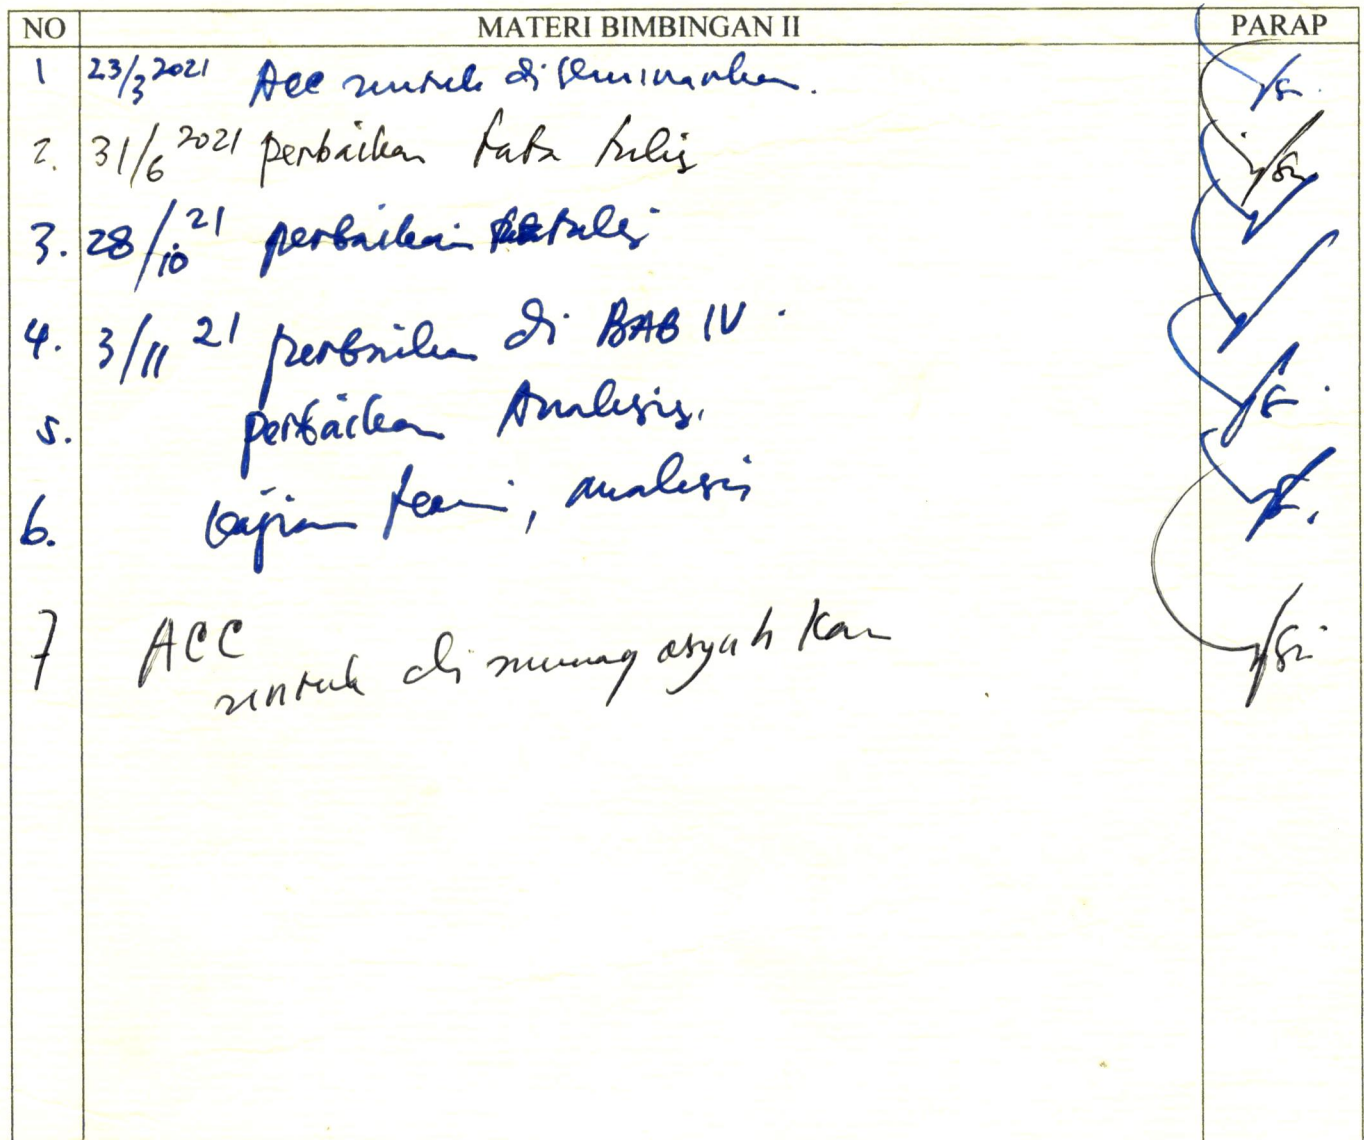 NO MATERI BIMBINGAN II PARAP
1 23/3 2021 Acc untuk diseminarkan.
2. 31/6 2021 perbaikan tata tulis
3. 28/10 21 perbaikan tulis
4. 3/11 21 perbaikan di BAB IV.
5. perbaikan Analisis.
6. kajian teori, analisis
7 ACC
untuk dimunaqasyahkan